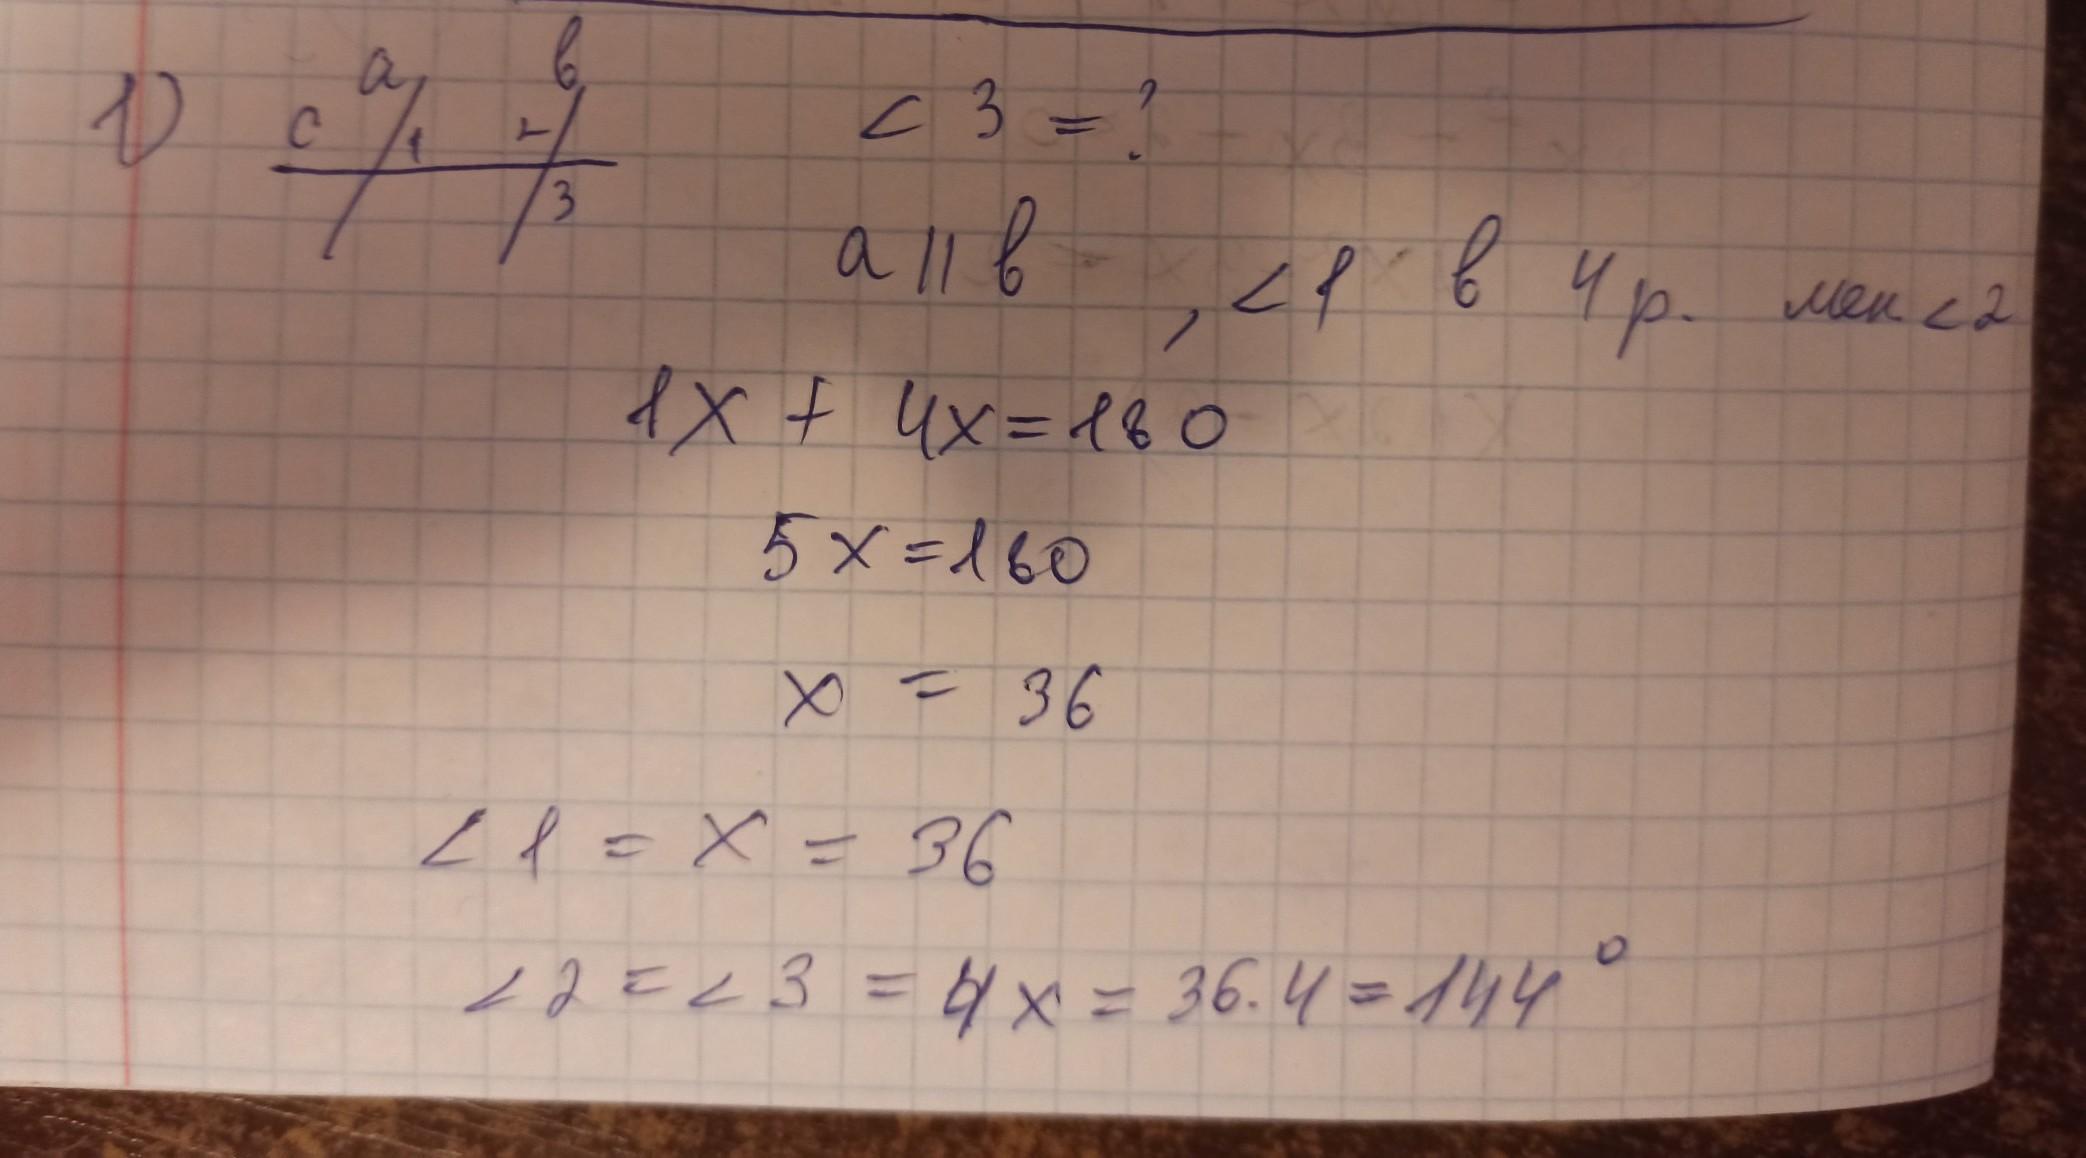 1) a в < 3 = ?
c 1 2
3
a || в , < 1 в 4 р. мен < 2
1x + 4x = 180
5x = 180
x = 36
< 1 = x = 36
< 2 = < 3 = 4x = 36 · 4 = 144°